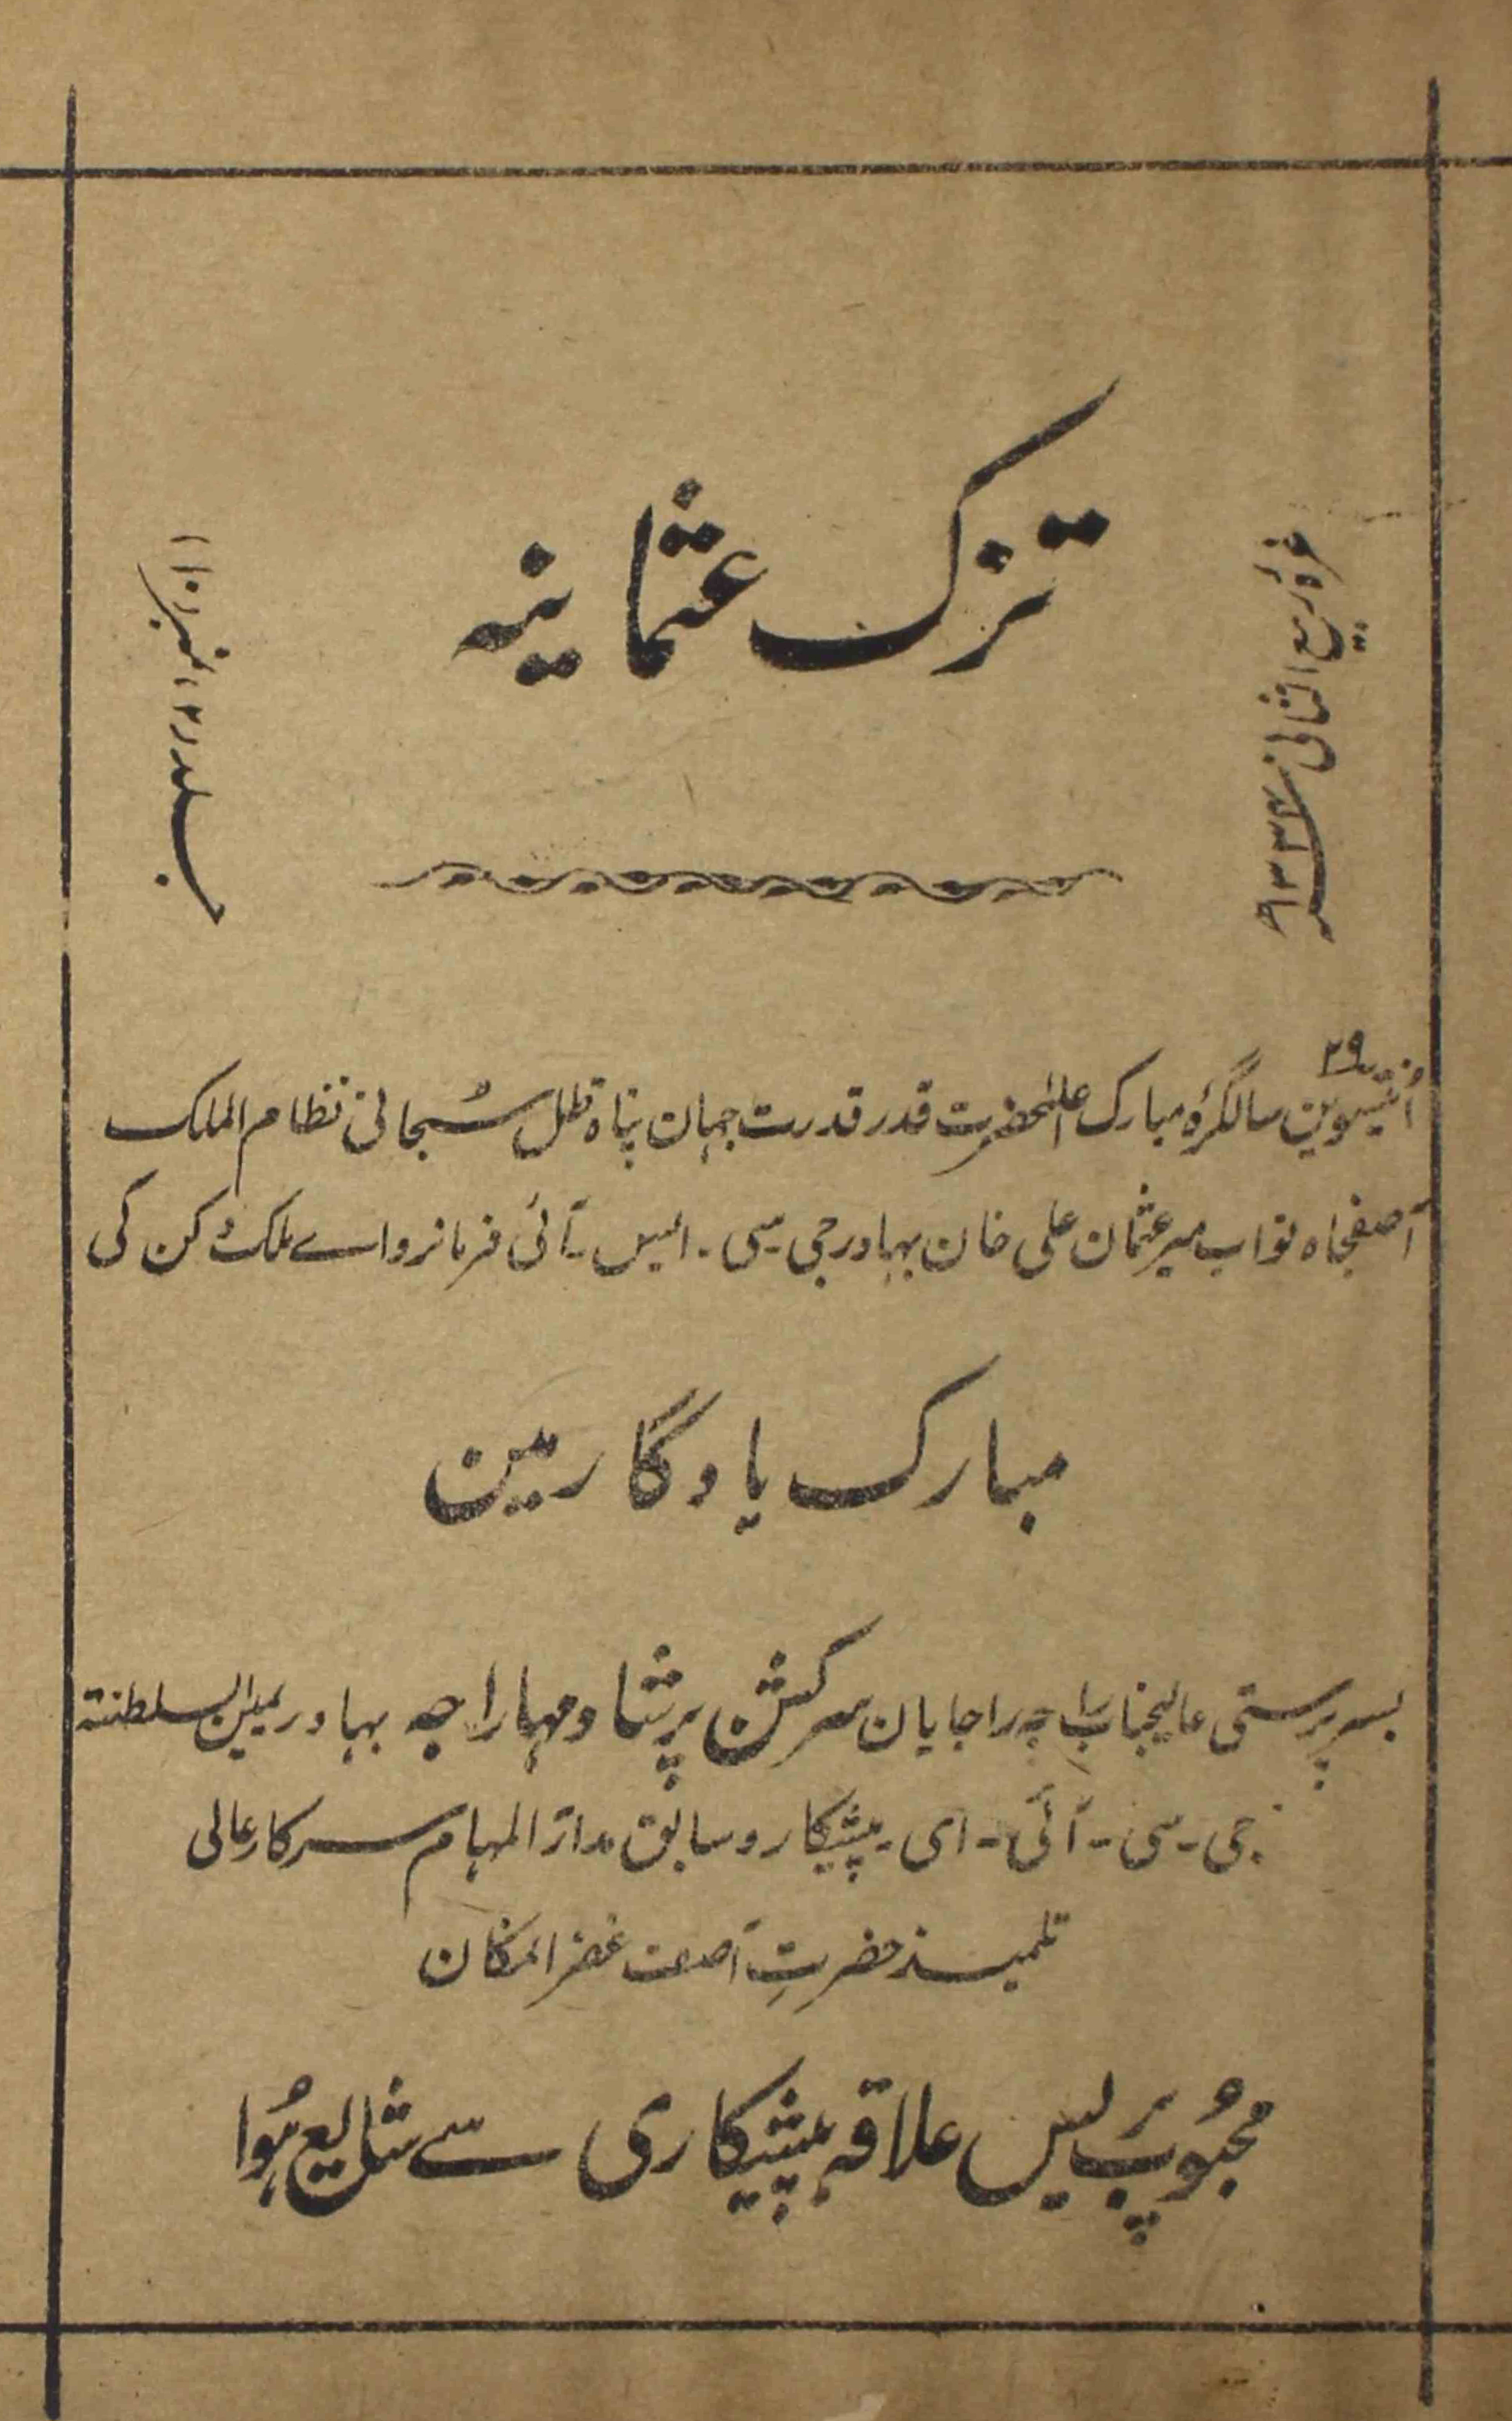 تزک عثمانیہ
غرۂ ربیع الثانی
جلد (۲) نمبر (۱۰)
۲۹
اُنتیسوین سالگرۂ مبارک اعلٰحضرت قدر قدرت جہان پناہ ظل سُبحانی نظام الملک
آصفجاہ نواب میر عثمان علی خان بہادر جی ۔ سی ۔ ایس ۔ آئی فرمانرواے ملک دکن کی
مبارک یادگار مین
بسر پرستی عالیجناب راجہ راجایان سر کشن پرشاد مہاراجہ بہادر یمین السلطنتہ
جی ۔ سی ۔ آئی ۔ ای ۔ پیشکار و سابق مدار المہام سرکار عالی
تلمیذ حضرتِ آصف غفر المکان
محبُوب پریس علاقہ پیشکاری سے شایع ہُوا